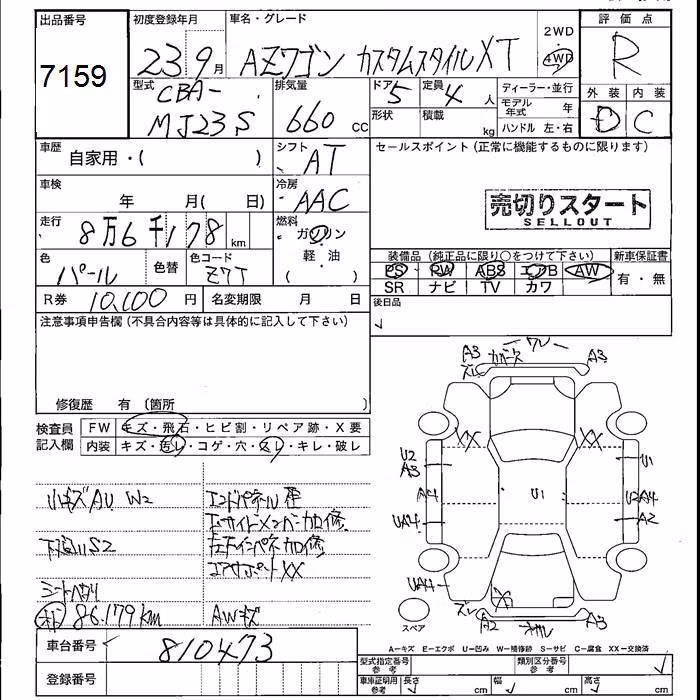 出品番号
7159
初度登録年月
23 9月
車名・グレード
AZワゴン カスタムスタイル XT
2WD
4WD
評価点
R
型式
CBA-
MJ23S
排気量
660 cc
ドア
5
定員
4 人
形状
積載
kg
ディーラー・並行
モデル年式 年
ハンドル 左・右
外装
内装
D
C
車歴
自家用・( )
シフト
AT
セールスポイント(正常に機能するものに限ります)
車検
年 月( 日)
冷房
AAC
売切りスタート
SELLOUT
走行
8万6千178km
燃料
ガソリン
軽・油
色
パール
色替
色コード
Z7T
装備品(純正品に限り○をつけて下さい)
新車保証書
PS PW ABS エアB AW
SR ナビ TV カワ
有・無
R券 10,100円
名変期限 月 日
後日品
注意事項申告欄(不具合内容等は具体的に記入して下さい)
修復歴 有〔箇所 〕
検査員
記入欄
FW キズ・飛石・ヒビ割・リペア跡・X要
内装 キズ・汚レ・コゲ・穴・スレ・キレ・破レ
小キズAU W2
S2
86,179km
AWキズ
エンドパネル
XX
A3
A3
XX
XX
U2
A3
A4
UA4
UA4
U1
U1
U2A4
A2
A3
スペア
A-キズ E-エクボ U-凹み W-補修跡 S-サビ C-腐食 XX-交換済
車台番号
810473
登録番号
型式指定番号
参考
類別区分番号
参考
車庫証明用
参考
長さ cm
幅 cm
高さ cm